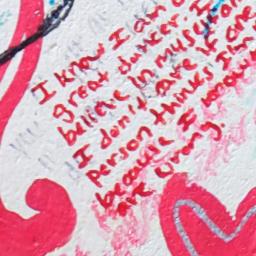 I know I am a
great dancer. I
believe in myself
I don't care if one
person thinks I'm
because I know
are wrong